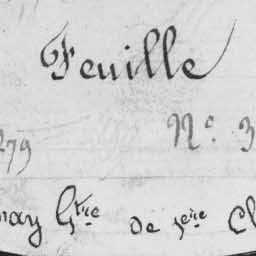 Feuille
279 N° 3
nay Gtre de 1ere Cl